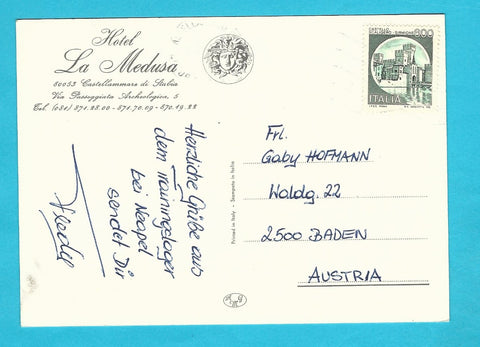 Hotel
La Medusa
80053 Castellammare di Stabia
Via Passeggiata Archeologica, 5
Tel. (081) 871.28.00 - 871.70.09 - 870.19.28
Herzliche Grüße aus
dem Trainingslager
bei Neapel
sendet Dir
Printed in Italy - Stampato in Italia
800
ITALIA
Frl.
Gaby HOFMANN
Waldg. 22
2500 BADEN
AUSTRIA